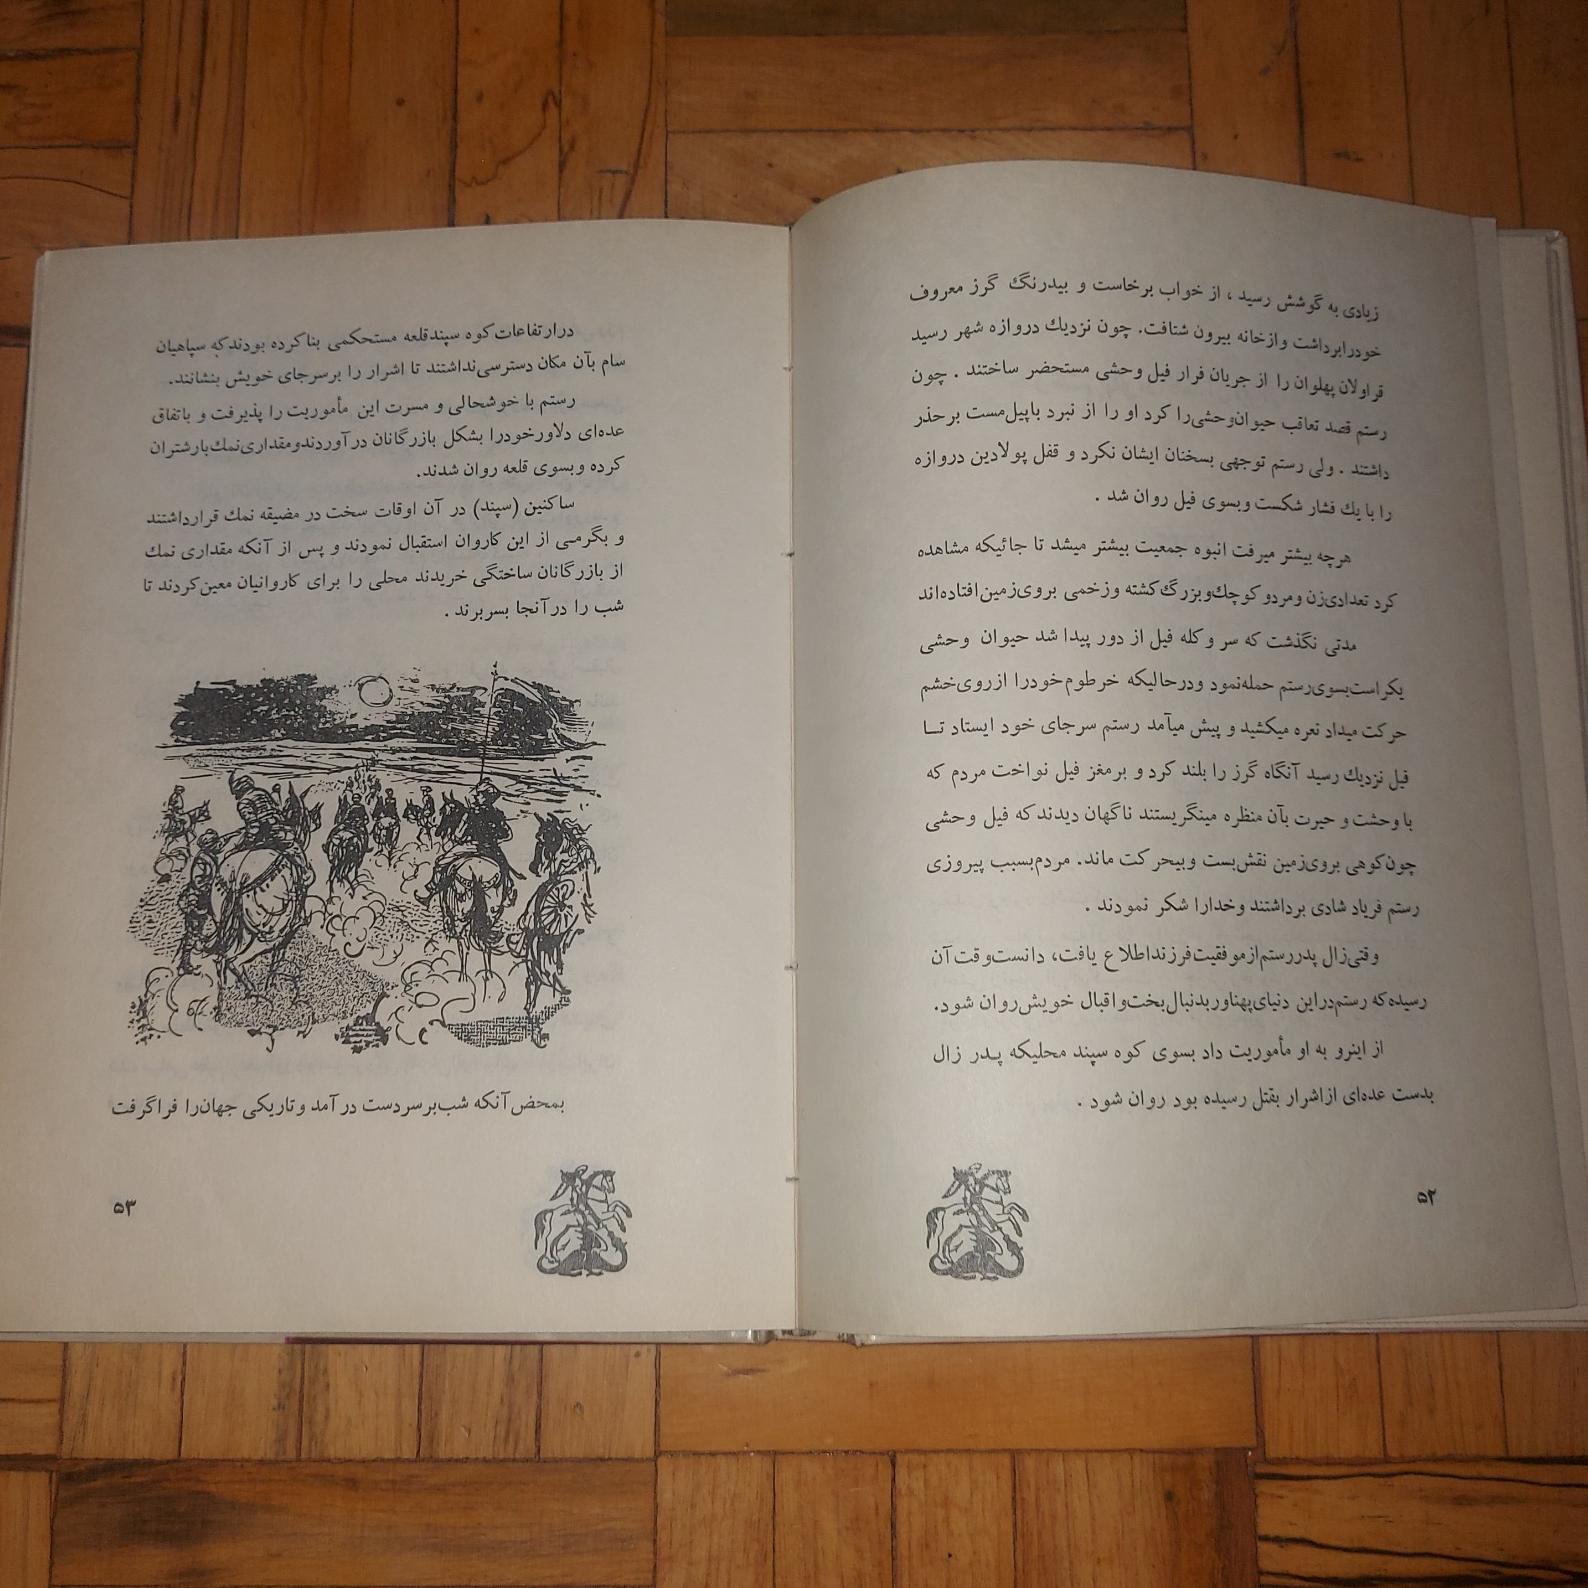 زیادی به گوشش رسید ، از خواب برخاست و بیدرنگ گرز معروف
خودرابرداشت وازخانه بیرون شتافت. چون نزدیك دروازه شهر رسید
قراولان پهلوان را از جریان فرار فیل وحشی مستحضر ساختند . چون
رستم قصد تعاقب حیوان‌وحشی‌را کرد او را از نبرد باپیل‌مست برحذر
داشتند . ولی رستم توجهی بسخنان ایشان نکرد و قفل پولادین دروازه
را با یك فشار شکست وبسوی فیل روان شد .
هرچه بیشتر میرفت انبوه جمعیت بیشتر میشد تا جائیکه مشاهده
کرد تعدادی‌زن ومردو کوچك‌وبزرگ‌کشته وزخمی بروی‌زمین‌افتاده‌اند
مدتی نگذشت که سر و کله فیل از دور پیدا شد حیوان وحشی
یکراست‌بسوی‌رستم حمله‌نمود ودرحالیکه خرطوم‌خودرا ازروی‌خشم
حرکت میداد نعره میکشید و پیش میآمد رستم سرجای خود ایستاد تــا
فیل نزدیك رسید آنگاه گرز را بلند کرد و برمغز فیل نواخت مردم که
با وحشت و حیرت بآن منظره مینگریستند ناگهان دیدند که فیل وحشی
چون‌کوهی بروی‌زمین نقش‌بست وبیحرکت ماند. مردم‌بسبب پیروزی
رستم فریاد شادی برداشتند وخدارا شکر نمودند .
وقتی‌زال پدررستم‌ازموفقیت‌فرزنداطلاع یافت، دانست‌وقت آن
رسیده‌که رستم‌دراین دنیای‌پهناوربدنبال‌بخت‌واقبال خویش‌روان شود.
از اینرو به او مأموریت داد بسوی کوه سپند محلیکه پـدر زال
بدست عده‌ای ازاشرار بقتل رسیده بود روان شود .
۵۲
درارتفاعات‌کوه سپندقلعه مستحکمی بناکرده بودندکه سپاهیان
سام بآن مکان دسترسی‌نداشتند تا اشرار را برسرجای خویش بنشانند.
رستم با خوشحالی و مسرت این مأموریت را پذیرفت و باتفاق
عده‌ای دلاورخودرا بشکل بازرگانان درآوردندومقداری‌نمك‌بارشتران
کرده وبسوی قلعه روان شدند.
ساکنین (سپند) در آن اوقات سخت در مضیقه نمك قرارداشتند
و بگرمـی از این کاروان استقبال نمودند و پس از آنکه مقداری نمك
از بازرگانان ساختگی خریدند محلی را برای کاروانیان معین‌کردند تا
شب را درآنجا بسربرند .
بمحض‌آنکه شب‌برسردست درآمد وتاریکی جهان‌را فراگرفت
۵۳